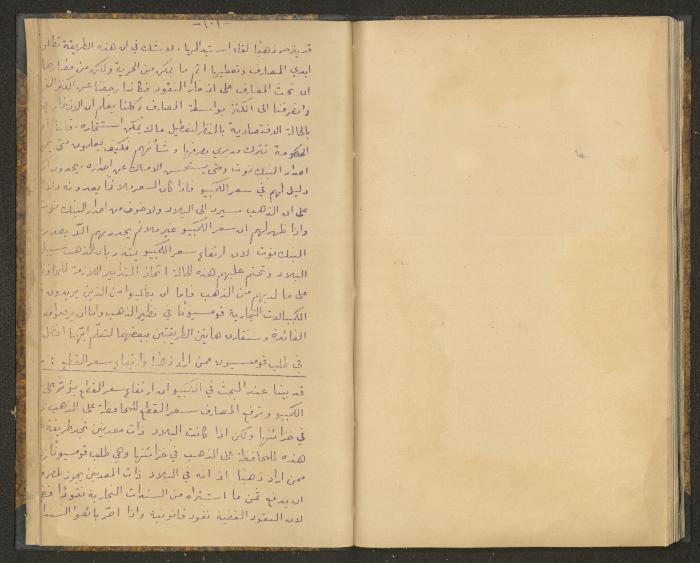 -١٠١-
قد يزمر ذهبًا لقاء استبدالها. لا شك في ان هذه الطريقة تطلق
ايدي المصارف وتعطيها اتم ما يمكن من الحرية ولكن من مضارها
ان تحث المصارف على ادخار النقود فكأننا رجعنا عن الكنز
وانصرفنا الى الكنز بواسطة المصارف وكلنا يعلم ان الادخار
بالحالة الاقتصادية بالنظر لتعطيل ما لا يمكن استثماره.
الحكومة تترك مديري مصرفها وشأنهم فكيف يعلمون متى
اصدار البنك نوت ومتى يستحسن الامساك عن اصداره. يجدون
دليل لهم في سعر الكمبيو فاذا كان السعر ملائمًا يعدونه دلالة
على ان الذهب سيرد الى البلاد ولا خوف من اصدار البنك نوت
واذا ظهر لهم ان سعر الكمبيو غير ملائم يجدر بهم الّا يصدروا
البنك نوت لان ارتفاع سعر الكمبيو ينذر بان الذهب
البلاد وتحتم عليهم هذه الحالة اتخاذ التدابير اللازمة للمحافظة
على ما لديهم من الذهب فاما ان يطلبوا من الذين يريدون
الكمبيالات التجارية قومسيونًا في نظير الذهب واما ان يرفعوا
الفائدة وسنقارن هاتين الطريقتين ببعضهما لنعلم ايتهما افضل
في طلب قومسيون ممن اراد ذهبًا وارتفاع سعر القطع : -
قد بينا عند البحث في الكمبيو ان ارتفاع سعر القطع يؤثر على
الكمبيو وترفع المصارف سعر القطع للمحافظة على الذهب
في خزائنها ولكن اذا كانت البلاد ذات معدنين نجد طريقة
هذه للمحافظة على الذهب في خزائنها وهي طلب قومسيونًا
ممن اراد ذهبًا اذ انه في البلاد ذات المعدنين يجوز للمصرف
ان يدفع ثمن ما اشتراه من السندات التجارية نقودًا
لان النقود الفضية نقود قانونية واذا اصر بائعو السندات